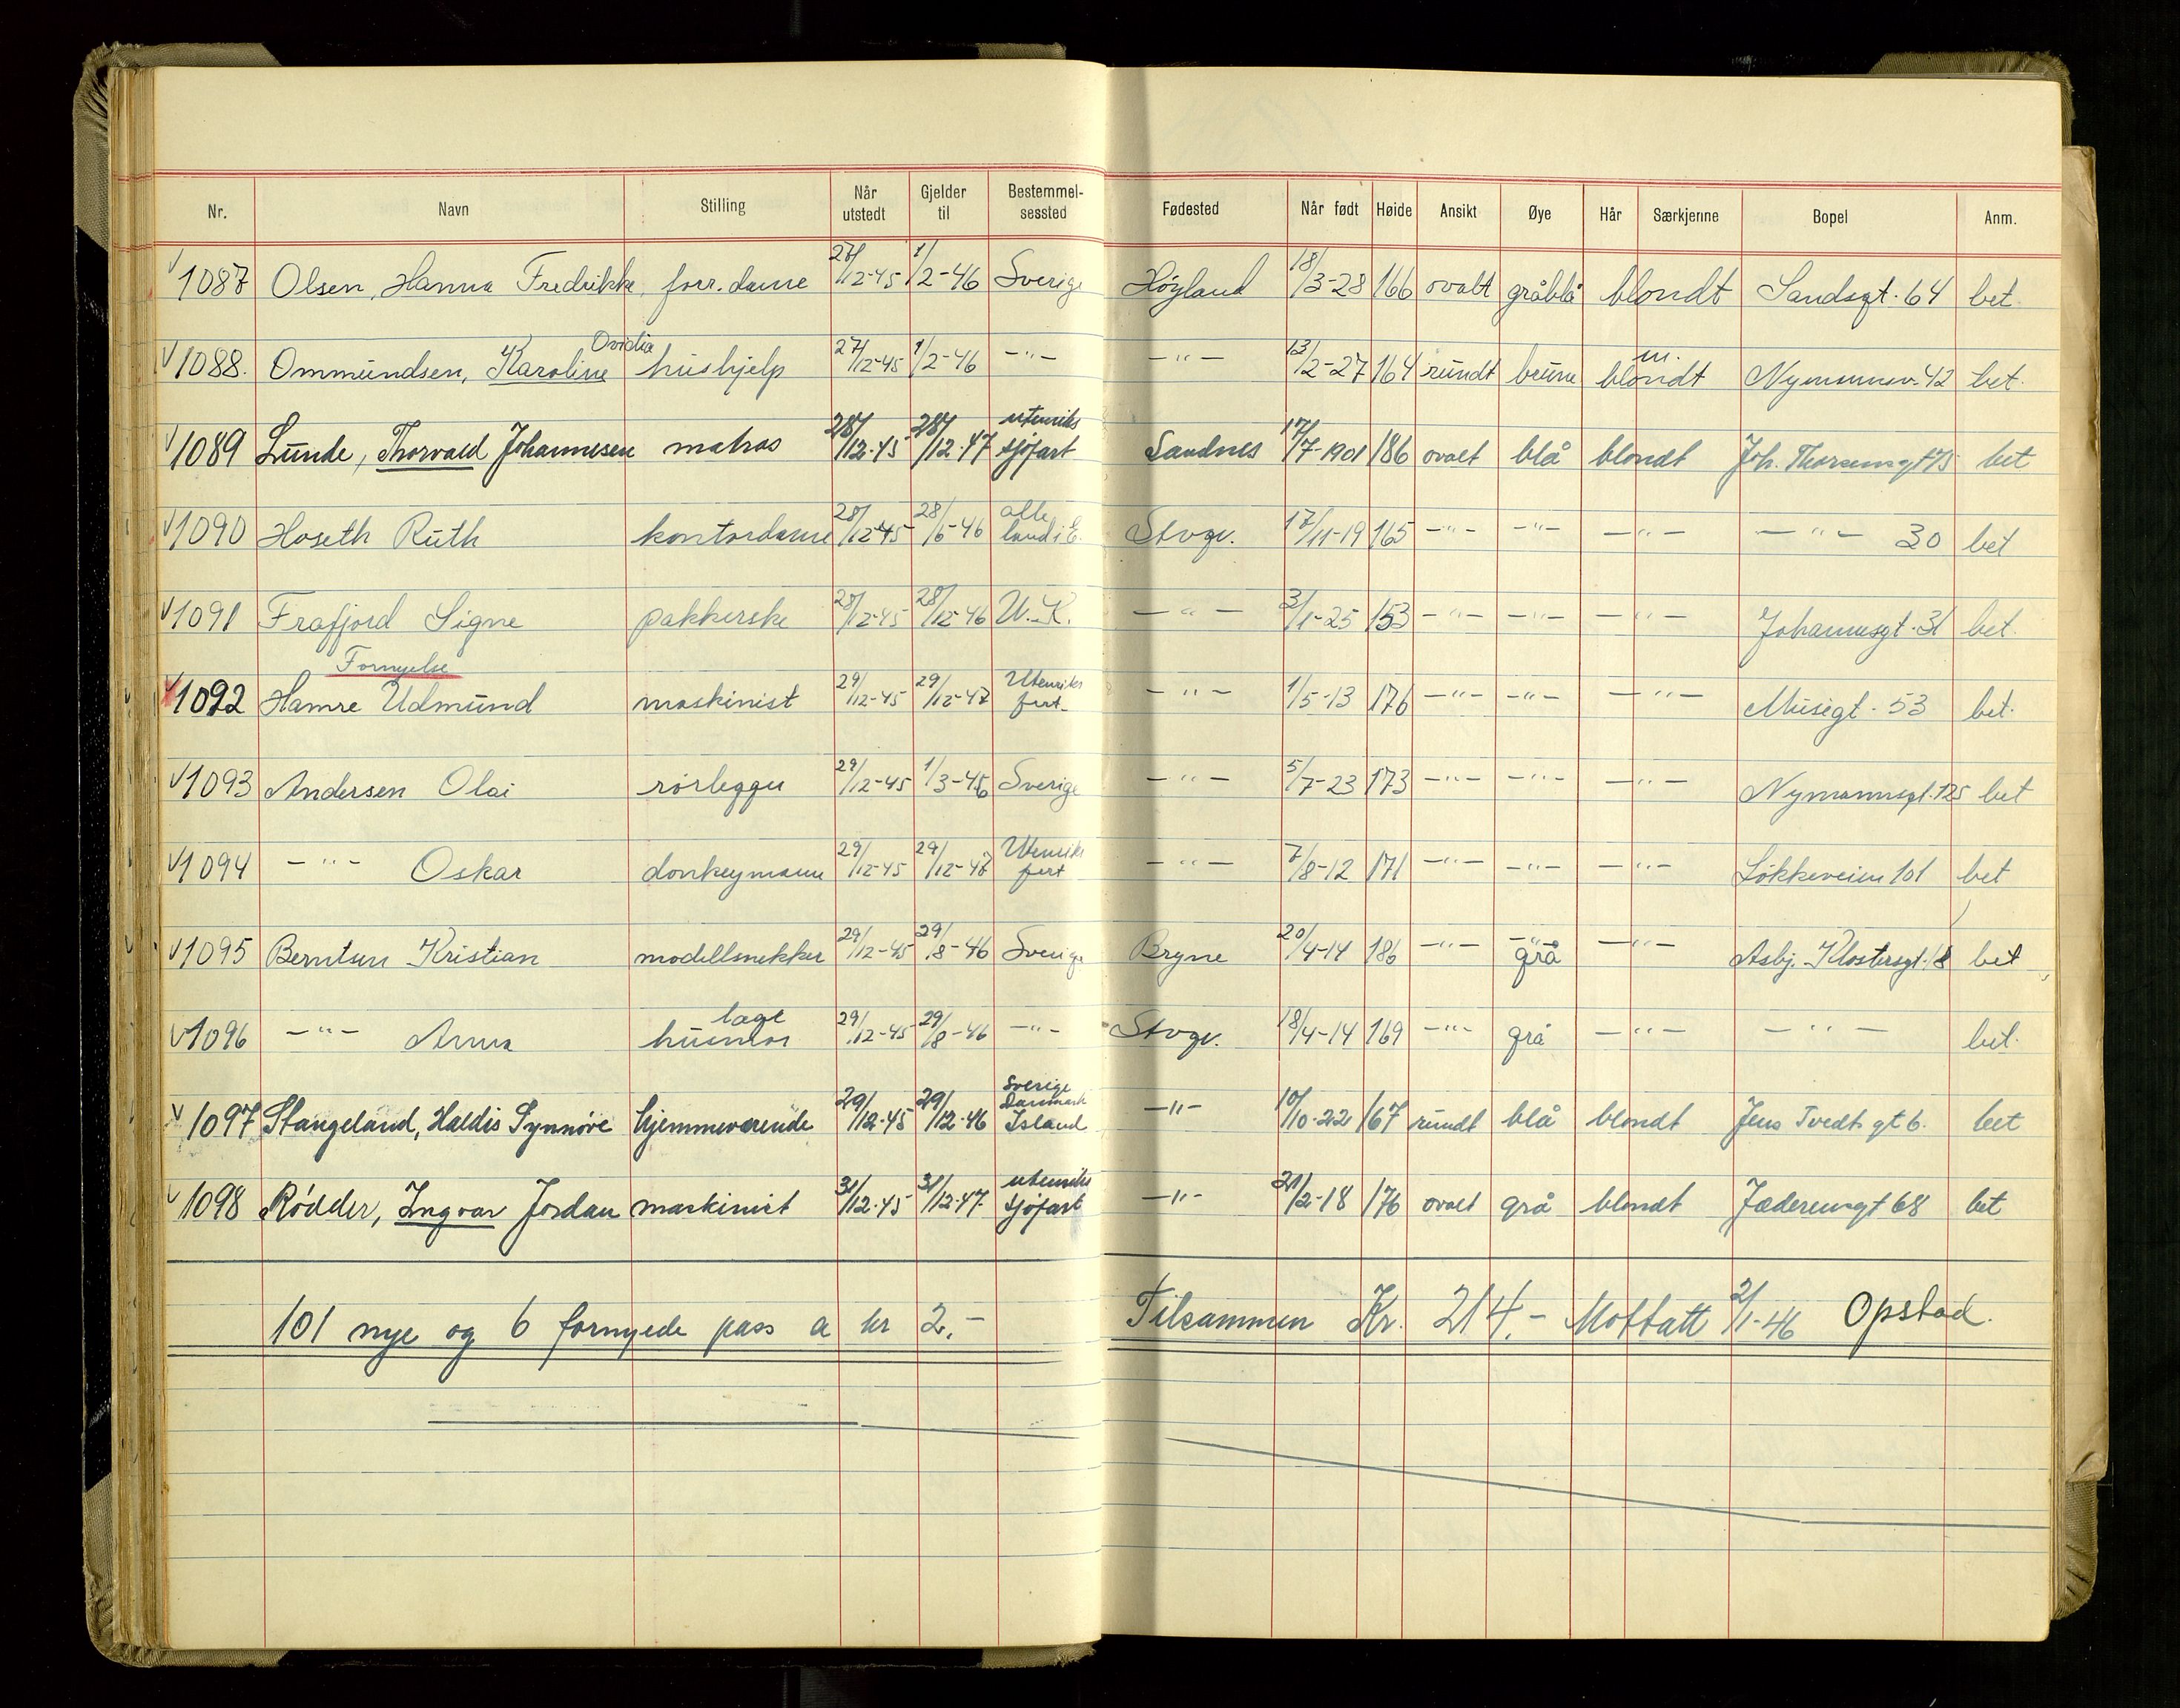 Nr. Navn Stilling Når utstedt Gjelder til Bestemmelsessted Fødested Når født Høide Ansikt Øye Hår Særkjenne Bopel Anm.
√ 1087 Olsen, Hanna Fredrikke forr. dame 27/12-45 1/2-46 Sverige Høyland 18/3-28 166 ovalt gråblå blondt Sandsgt. 64 bet.
√ 1088. Ommundsen, Karoline Ovidia hushjelp 27/12-45 1/2-46 -"- -"- 13/2-27 164 rundt brune m. blondt 42 bet.
√ 1089 Lunde, Thorvald Johannesen matros 28/12.45 28/12.47 utenriks sjøfart Sandnes 17/7-1901 186 ovalt blå blondt Joh. Thorsensgt 75 bet
√ 1090 Hoseth Ruth kontordame 28/12-45 28/6-46 alle land i E. Stvgr. 17/11-19 165 -"- -"- -"- -"- 30 bet
√ 1091 Frafjord Signe pakkerske 28/12-45 28/12-46 U.K. -"- 3/1-25 153 -"- -"- -"- Johannesgt. 31 bet.
Fornyelse
√ 1092 Hamre Udmund maskinist 29/12-45 29/12-47 Utenriks fart -"- 1/5-13 176 -"- -"- -"- Musegt. 53 bet.
√ 1093 Andersen Olai rørlegger 29/12-45 1/3-46 Sverige -"- 5/7-23 173 -"- -"- -"- Nymannsgt. 125 bet
√ 1094 -"- Oskar donkeymann 29/12-45 29/12-47 Utenriks fart -"- 7/8-12 171 -"- -"- -"- Løkkeveien 101 bet
√ 1095 Berntsen Kristian modellsnekker 29/12-45 29/8-46 Sverige Bryne 20/4-14 186 -"- -"- grå -"- Asbj. Klostersgt. 18 bet
√ 1096 -"- Anna husmor 29/12-45 29/8-46 -"- Stvgr. 18/4-14 169 -"- grå -"- -"- bet.
√ 1097 Stangeland, Haldis Synnøve hjemmeværende 29/12.45 29/12.46 Sverige Danmark Island -"- 10/10-22 167 rundt blå blondt Jens Tvedts gt 6. bet
√ 1098 Rødder, Ingvar Jordan maskinist 31/12.45 31/12.47 utenriks sjøfart -"- 21/2-18 176 ovalt grå blondt Jæderensgt 68 bet
101 nye og 6 fornyede pass a kr 2,- Tilsammen Kr. 214.- Mottatt 2/1-46 Opstad.